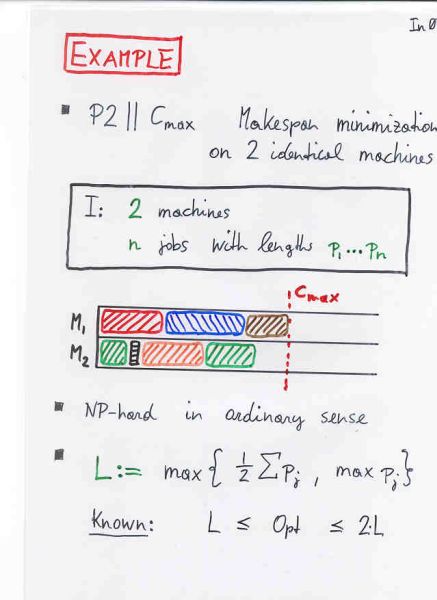 EXAMPLE
P2 || Cmax Makespan minimization
on 2 identical machines
I: 2 machines
n jobs with lengths P1 ... Pn
Cmax
M1
M2
NP-hard in ordinary sense
L := max{ 1/2 ∑ Pj , max Pj }
Known: L ≤ Opt ≤ 2·L